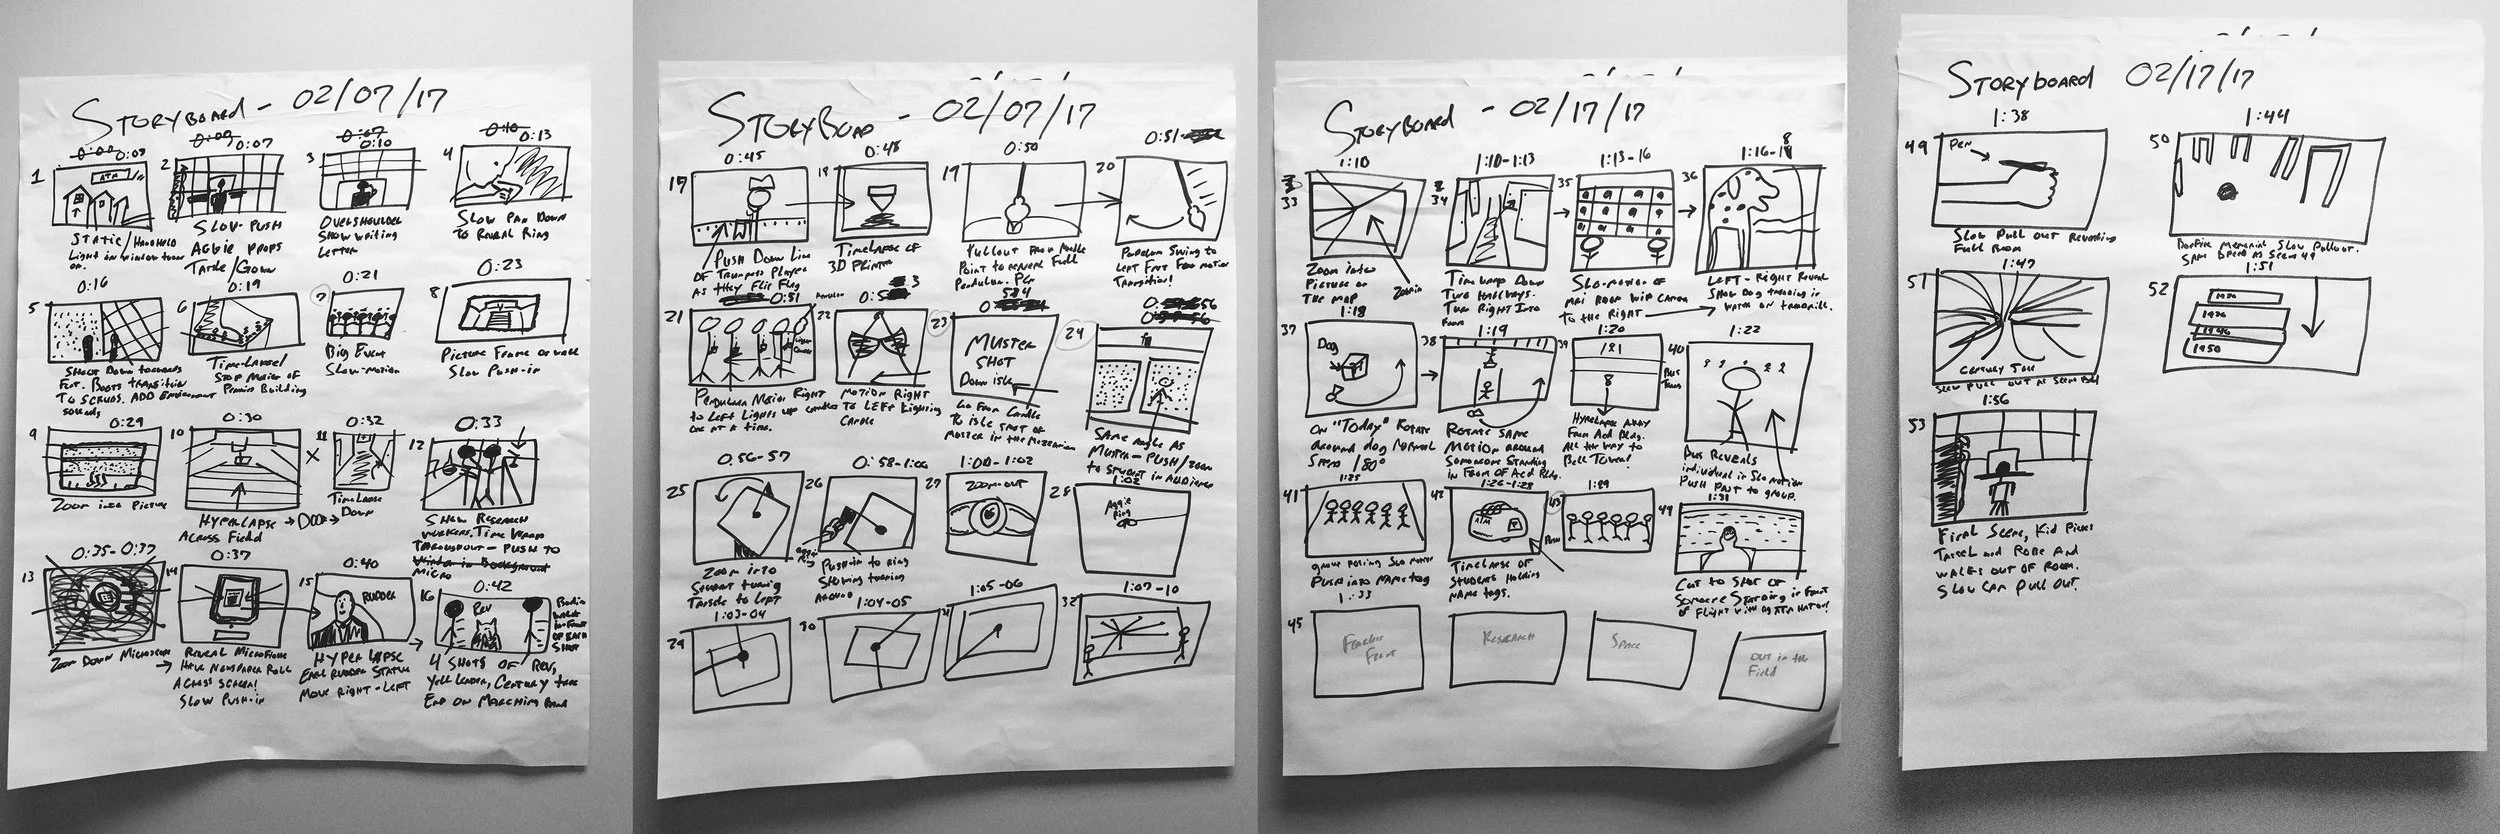 STORYBOARD - 02/07/17
1
0:07
ATM
STATIC/HANDHELD
Light in window turn
on.
2
0:07
SLOW-PUSH
AGGIE PROPS
TASSLE/GOWN
3
0:10
OVERSHOULDER
SHOW WRITING
LETTER
4
0:13
SLOW PAN DOWN
TO REVEAL RING
5
0:16
SHOOT DOWN towards
FEET. BOOTS TRANSITION
TO SCRUBS. ADD
sounds
6
0:19
TIME-LAPSED
STOP MOTION OF
BUILDING
7
0:21
BIG EVENT
SLOW-MOTION
8
0:23
PICTURE FRAME ON WALL
SLOW PUSH-IN
9
0:29
ZOOM INTO PICTURE
10
0:30
HYPERLAPSE → DOOR →
ACROSS FIELD
11
0:32
TIMELAPSE
DOWN
12
0:33
SHOW RESEARCH
WORKERS. TIME
THROUGHOUT - PUSH TO
MICRO
13
0:35-0:37
ZOOM DOWN MICROSCOPE
14
0:37
REVEAL MICROFICHE
HAVE NEWSPAPER ROLL
ACROSS SCREEN!
SLOW PUSH-IN
15
0:40
RUDDER
HYPERLAPSE
EARL RUDDER STATUE
MOVE RIGHT-LEFT
16
0:42
REV
IN FRONT
OF EACH
SHOT
4 SHOTS OF REV,
YELL LEADER, CENTURY TREE
END ON MARCHING BAND
STORYBOARD - 02/07/17
17
0:45
PUSH DOWN LINE
OF TRUMPETS PLAYERS
AS THEY FLIP FLAG
18
0:48
TIMELAPSE OF
3D PRINTER
19
0:50
PULLOUT FROM MIDDLE
POINT TO REVEAL FULL
PENDULUM.
20
0:51
PENDULUM SWING TO
LEFT FOR MOTION
TRANSITION!
21
0:51
PENDULUM MOTION RIGHT
to LEFT LIGHTS UP CANDLES
ONE AT A TIME.
22
MOTION RIGHT
TO LEFT LIGHTING
CANDLE
23
MUSTER
SHOT
DOWN ISLE
GO FROM CANDLE
TO ISLE SHOT OF
MUSTER IN THE
24
0:56
SAME ANGLE AS
MUSTER - PUSH/ZOOM
TO STUDENT IN AUDIENCE
25
0:56-57
ZOOM INTO
STUDENT TURNING
TASSLE TO LEFT
26
0:58-1:00
AGGIE
RING
PUSH-IN TO RING
SHOWING TURNING
AROUND
27
1:00-1:02
ZOOM-OUT
28
1:02
Aggie
Ring
29
1:03-04
30
1:04-05
31
1:05-06
32
1:07-10
STORYBOARD - 02/17/17
33
1:10
ZOOM INTO
PICTURE OF
THE MAP
ZOOM IN
34
1:10-1:13
DOWN
TWO HALLWAYS.
TURN RIGHT INTO
ROOM
35
1:13-16
SLO-MOTION OF
MRI ROOM WITH CAMERA
TO THE RIGHT
36
1:16-18
LEFT-RIGHT REVEAL
SHOW DOG
WATER ON TREADMILL.
37
1:18
Dog
ON "TODAY" ROTATE
AROUND DOG NORMAL
SPEED 180°
38
1:19
ROTATE SAME
MOTION AROUND
SOMEONE STANDING
IN FRONT OF ACD BLDG.
39
1:20
HYPERLAPSE AWAY
FROM ACD BLDG.
ALL THE WAY TO
BELL TOWER!
40
1:22
BUS
TURNS
BUS REVEALS
INDIVIDUAL IN SLO MOTION
PUSH PAST TO GROUP.
41
1:25
GROUP POSING SLO MOTION
PUSH INTO NAME TAG
42
1:26-1:28
ATM
PUSH
TIMELAPSE OF
STUDENTS HOLDING
NAME TAGS.
43
1:29
44
1:31
CUT TO SHOT OF
SOMEONE STANDING IN FRONT
OF FLIGHT WITH
45
1:33
FEARLESS
FRONT
RESEARCH
SPACE
OUT in the
Field
STORYBOARD 02/17/17
49
1:38
PEN
SLOW PULL OUT REVEALING
FULL ROOM
50
1:44
BONFIRE MEMORIAL SLOW PULLOUT.
SAME SPEED AS SCENE 49
51
1:47
CENTURY TREE
SLOW PULL OUT AS SCENE
52
1:51
1936
1946
1950
53
1:56
FINAL SCENE, KID PICKS
TASSEL AND ROBE AND
WALKS OUT OF ROOM.
SLOW CAM PULL OUT.